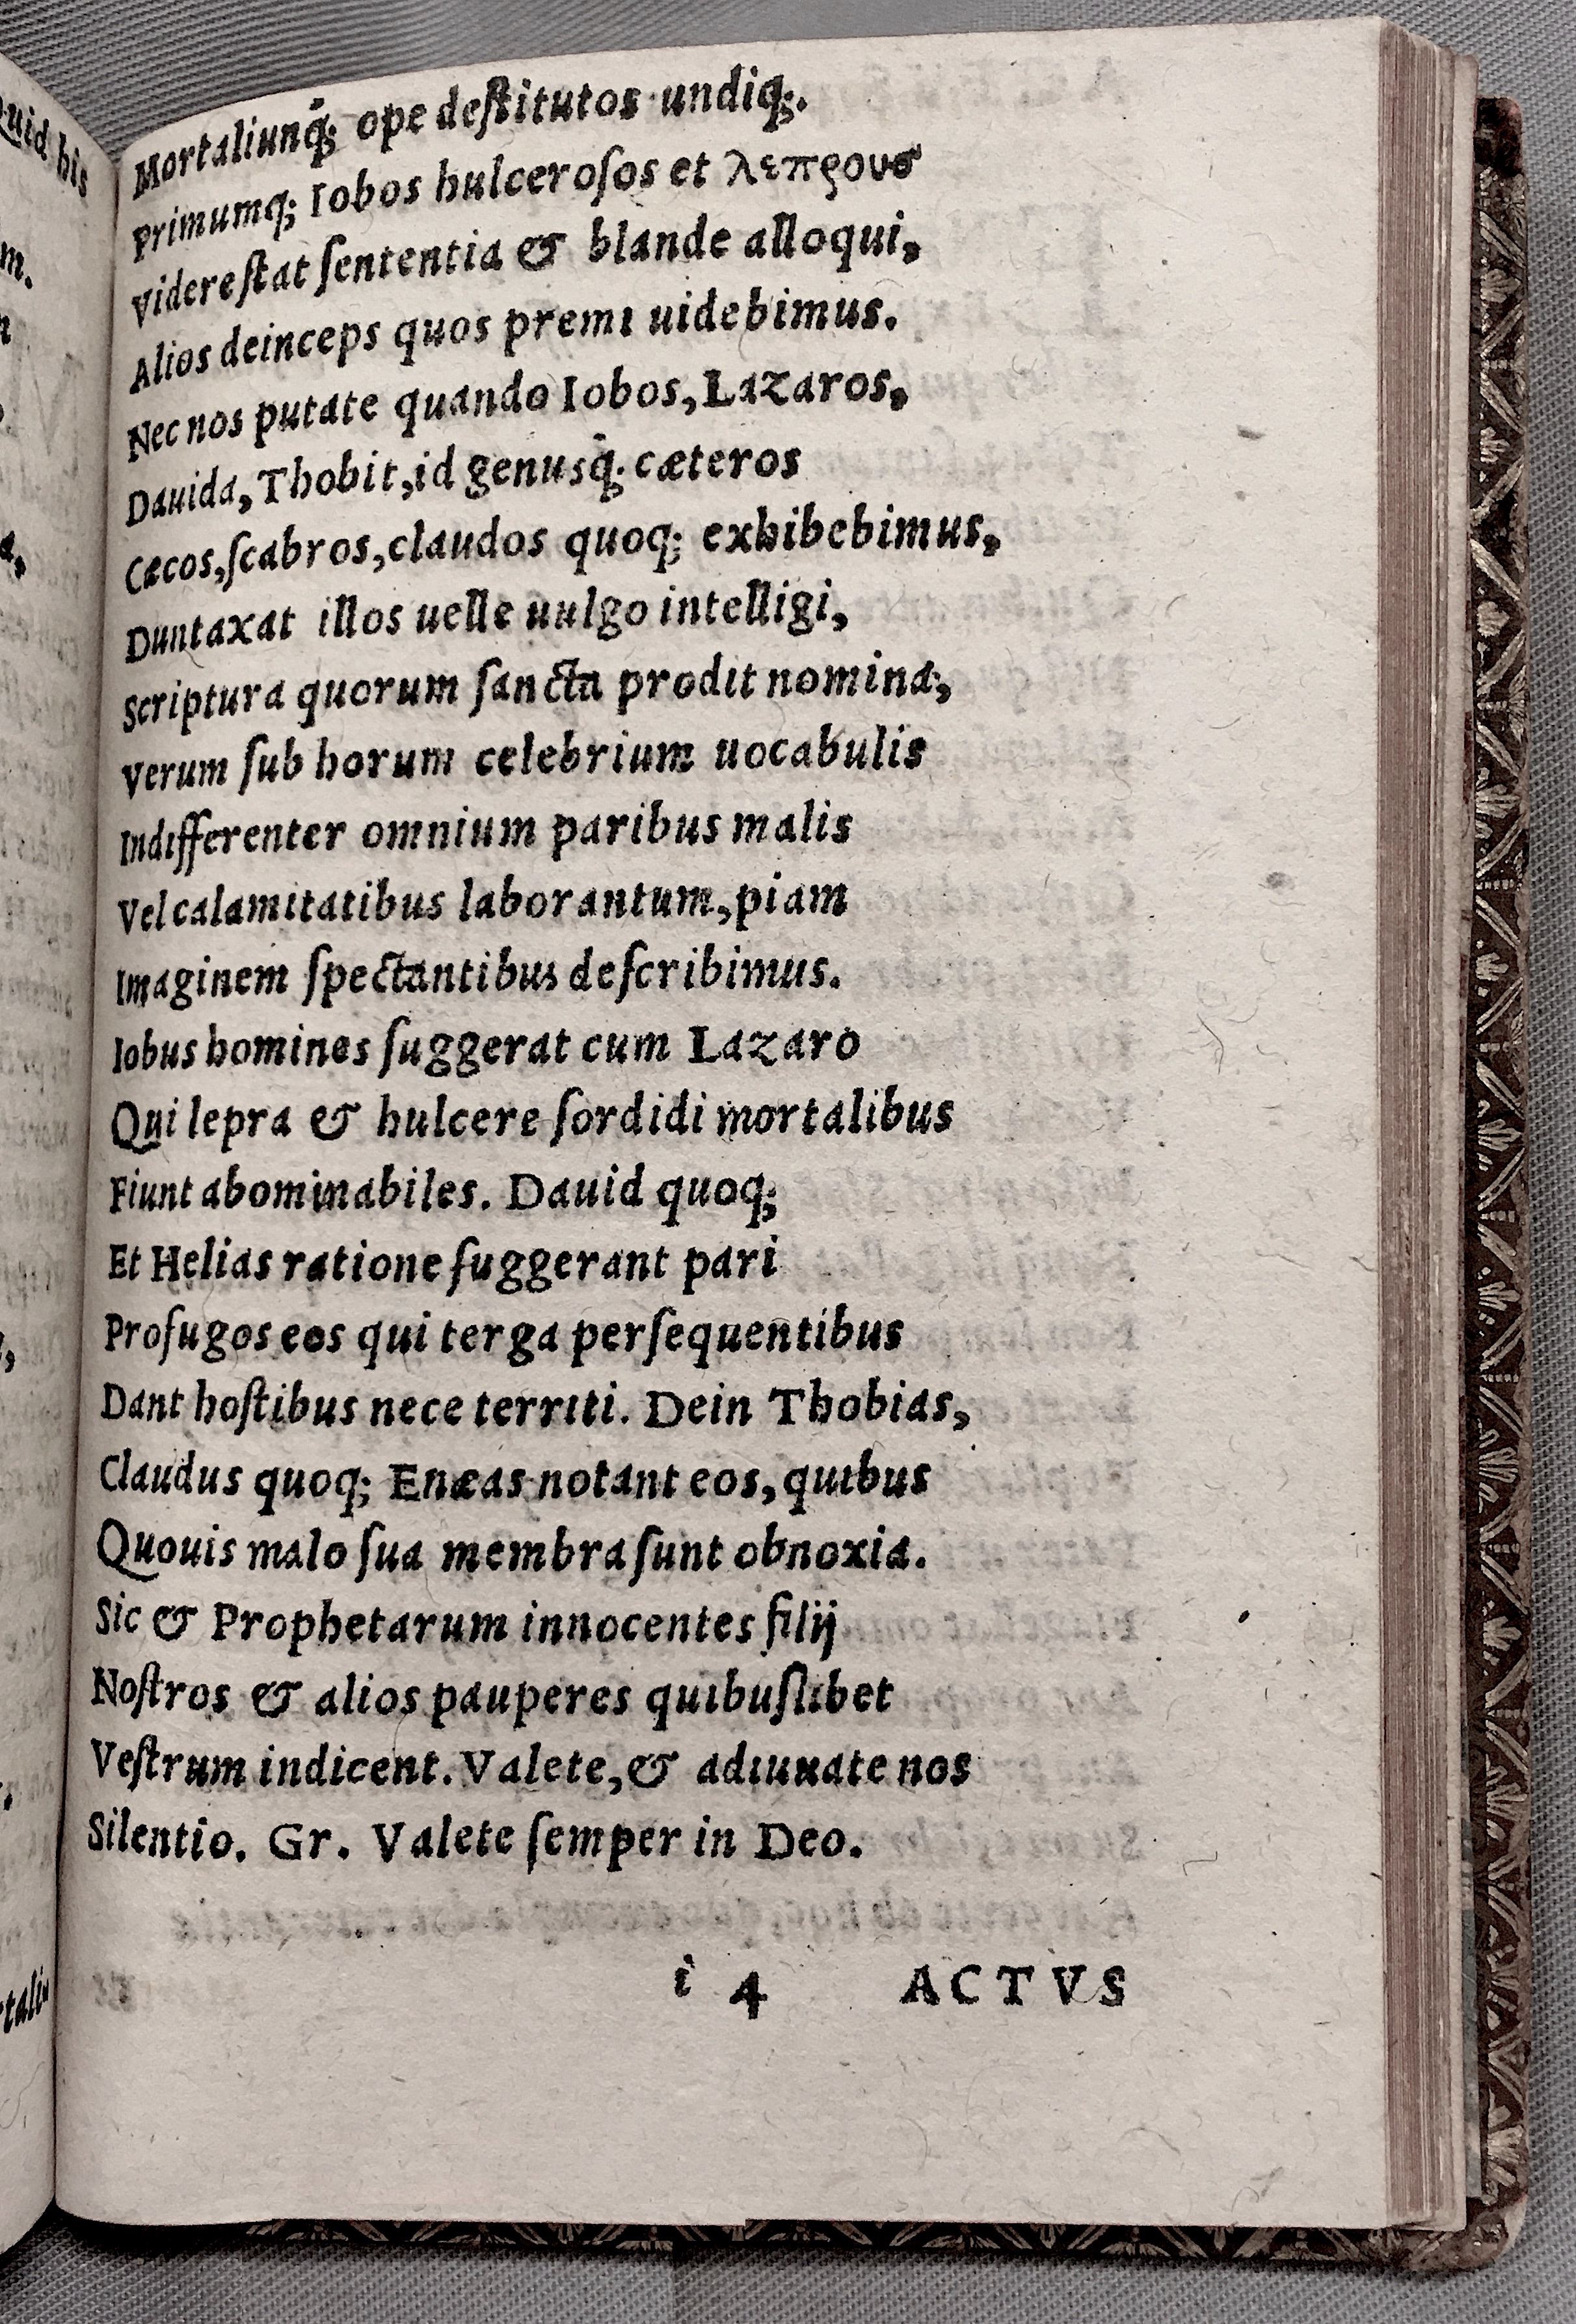 Mortaliunq́; ope deſtitutos undiq;.
Primumq; Iobos hulceroſos et λεπρουσ
Videre ſtat ſententia & blande alloqui,
Alios deinceps quos premi uidebimus.
Nec nos putate quando Iobos, Lazaros,
Dauida, Thobit, id genusq́; cæteros
Cæcos, ſcabros, claudos quoq; exhibebimus,
Duntaxat illos uelle uulgo intelligi,
Scriptura quorum ſancta prodit nomina;,
Verum ſub horum celebrium uocabulis
Indifferenter omnium paribus malis
Vel calamitatibus laborantum, piam
Imaginem ſpectantibus deſcribimus.
Iobus homines ſuggerat cum Lazaro
Qui lepra & hulcere ſordidi mortalibus
Fiunt abominabiles. Dauid quoq;
Et Helias ratione ſuggerant pari
Profugos eos qui terga perſequentibus
Dant hoſtibus nece territi. Dein Thobias,
Claudus quoq; Enæas notant eos, quibus
Quouis malo ſua membra ſunt obnoxia.
Sic & Prophetarum innocentes filij
Noſtros & alios pauperes quibuſlibet
Veſtrum indicent. Valete, & adiuuate nos
Silentio. Gr. Valete ſemper in Deo.
i 4 ACTVS